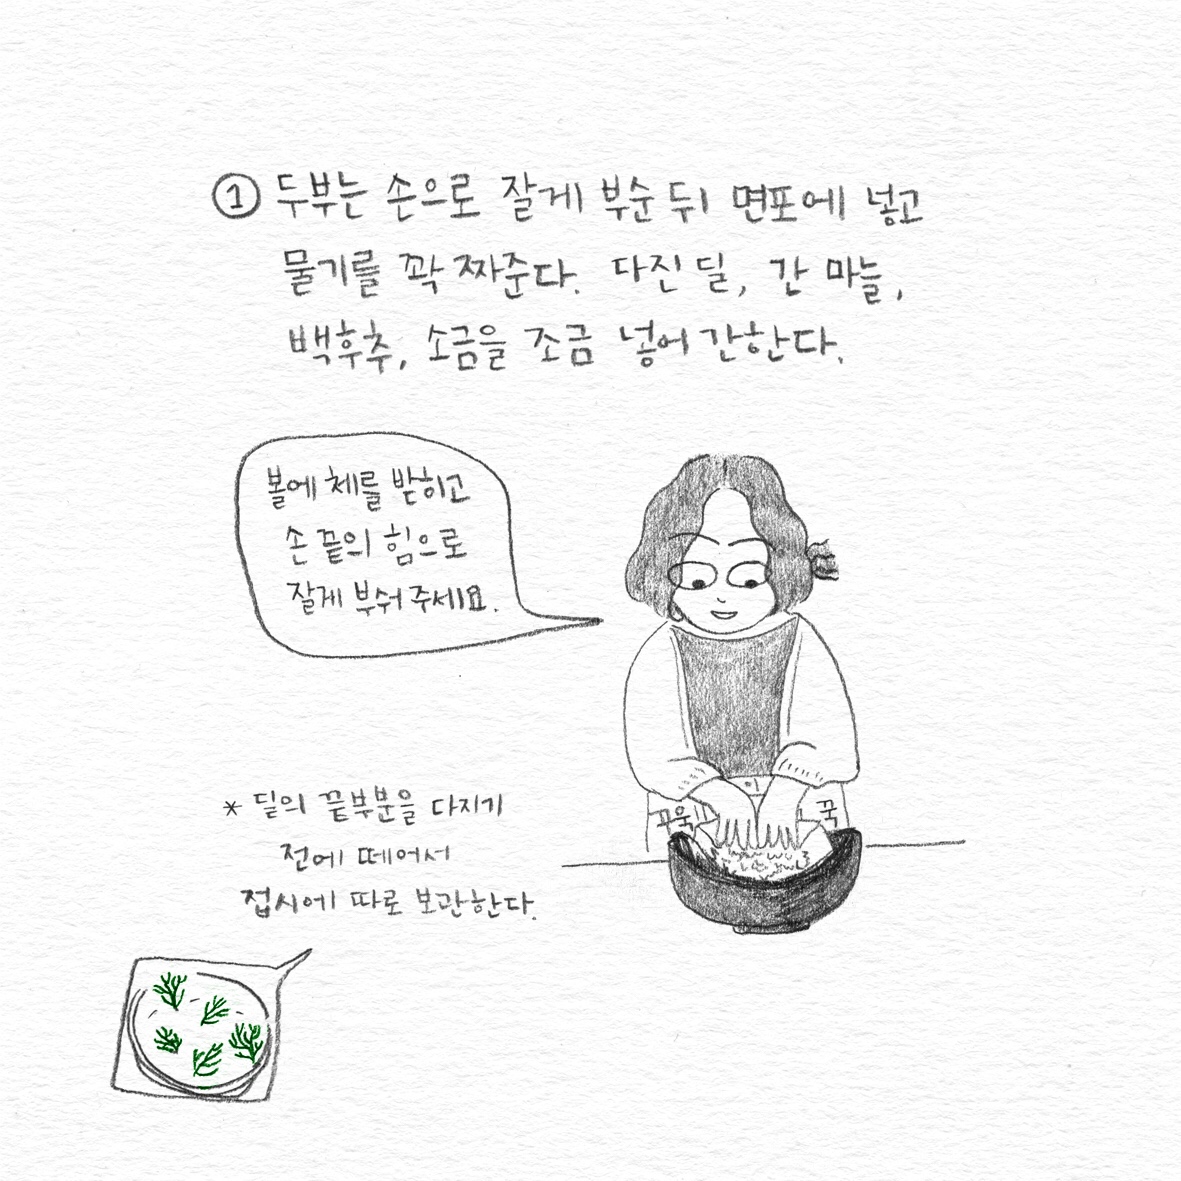 ① 두부는 손으로 잘게 부순 뒤 면포에 넣고
물기를 꽉 짜준다. 다진 딜, 간 마늘,
백후추, 소금을 조금 넣어 간한다.
볼에 체를 받히고
손 끝의 힘으로
잘게 부숴 주세요.
꾸욱
꾹
* 딜의 끝부분을 다지기
전에 떼어서
접시에 따로 보관한다.